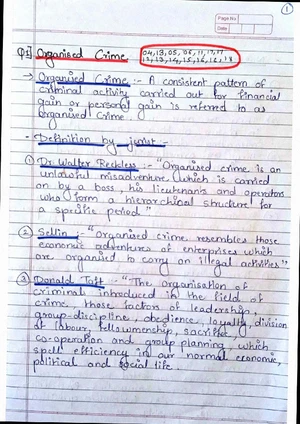 Page No
Date
1
Q1 Organised Crime 04,13,05,06,11,17,17
12,13,14,15,16,16,18
→ Organised Crime :- A consistent pattern of
criminal activity carried out for financial
gain or personal gain is referred to as
organised Crime.
- Definition by jurist -
① Dr. Walter Reckless :- "Organised crime is an
unlawful misadventure which is carried
on by a boss, his lieutenants and operators
who form a hierarchical structure for
a specific period"
② Sellin :- "Organised crime resembles those
economic adventures of enterprises which
are organised to carry on illegal activities"
③ Donald Taft :- "The organisation of
criminal introduced in the field of
crime, those factors of leadership,
group-discipline, obedience, loyalty, division
of labour, fellowmenship, sacrifice,
co-operation and group planning, which
spell efficiency in our normal economic,
political and social life.